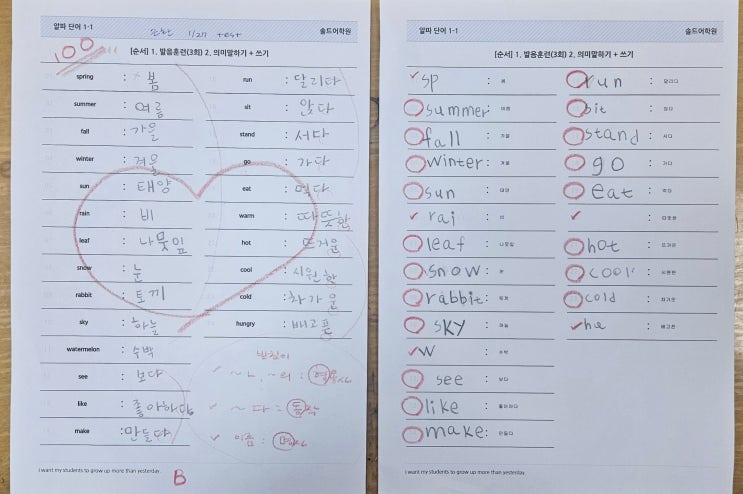 알파 단어 1-1
1/27 test
솔드어학원
100
[순서] 1. 발음훈련(3회) 2. 의미말하기 + 쓰기
spring : 봄
summer : 여름
fall : 가을
winter : 겨울
sun : 태양
rain : 비
leaf : 나뭇잎
snow : 눈
rabbit : 토끼
sky : 하늘
watermelon : 수박
see : 보다
like : 좋아하다
make : 만들다
run : 달리다
sit : 앉다
stand : 서다
go : 가다
eat : 먹다
warm : 따뜻한
hot : 뜨거운
cool : 시원한
cold : 차가운
hungry : 배고픈
받침이
~ㄴ, ~의 : 형용사
~다 : 동작
이름 : 명사
I want my students to grow up more than yesterday.
B
알파 단어 1-1
솔드어학원
[순서] 1. 발음훈련(3회) 2. 의미말하기 + 쓰기
sp : 봄
summer : 여름
fall : 가을
winter : 겨울
sun : 태양
rai : 비
leaf : 나뭇잎
snow : 눈
rabbit : 토끼
sky : 하늘
w : 수박
see : 보다
like : 좋아하다
make : 만들다
run : 달리다
bit : 앉다
stand : 서다
go : 가다
eat : 먹다
: 따뜻한
hot : 뜨거운
cool : 시원한
cold : 차가운
he : 배고픈
I want my students to grow up more than yesterday.